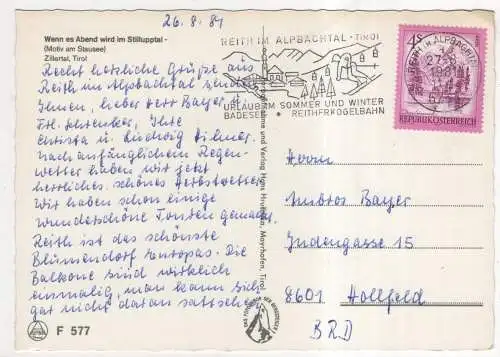 26.8.81
Wenn es Abend wird im Stillupptal -
(Motiv am Stausee)
Zillertal, Tirol
Recht herzliche Grüße aus
Reith im Alpbachtal senden
Ihnen, lieber Herr Bayer,
Frl. Schrenker, Ihre
Christa u. Ludwig Hilmer.
Nach anfänglichem Regen-
wetter haben wir jetzt
herrliches, schönes Herbstwetter.
Wir haben schon einige
wunderschöne Touren gemacht.
Reith ist das schönste
Blumendorf Europas. Die
Balkone sind wirklich
einmalig, man kann sich
gar nicht daran sattsehen.
F 577
REITH IM ALPBACHTAL - TIROL
URLAUB IM SOMMER UND WINTER
BADESEE * REITHERKOGELBAHN
und Verlag Hgn. Mayrhofen, Tirol
4S
REPUBLIK ÖSTERREICH
Herrn
Ambros Bayer
Judengasse 15
8601 Hollfeld
BRD